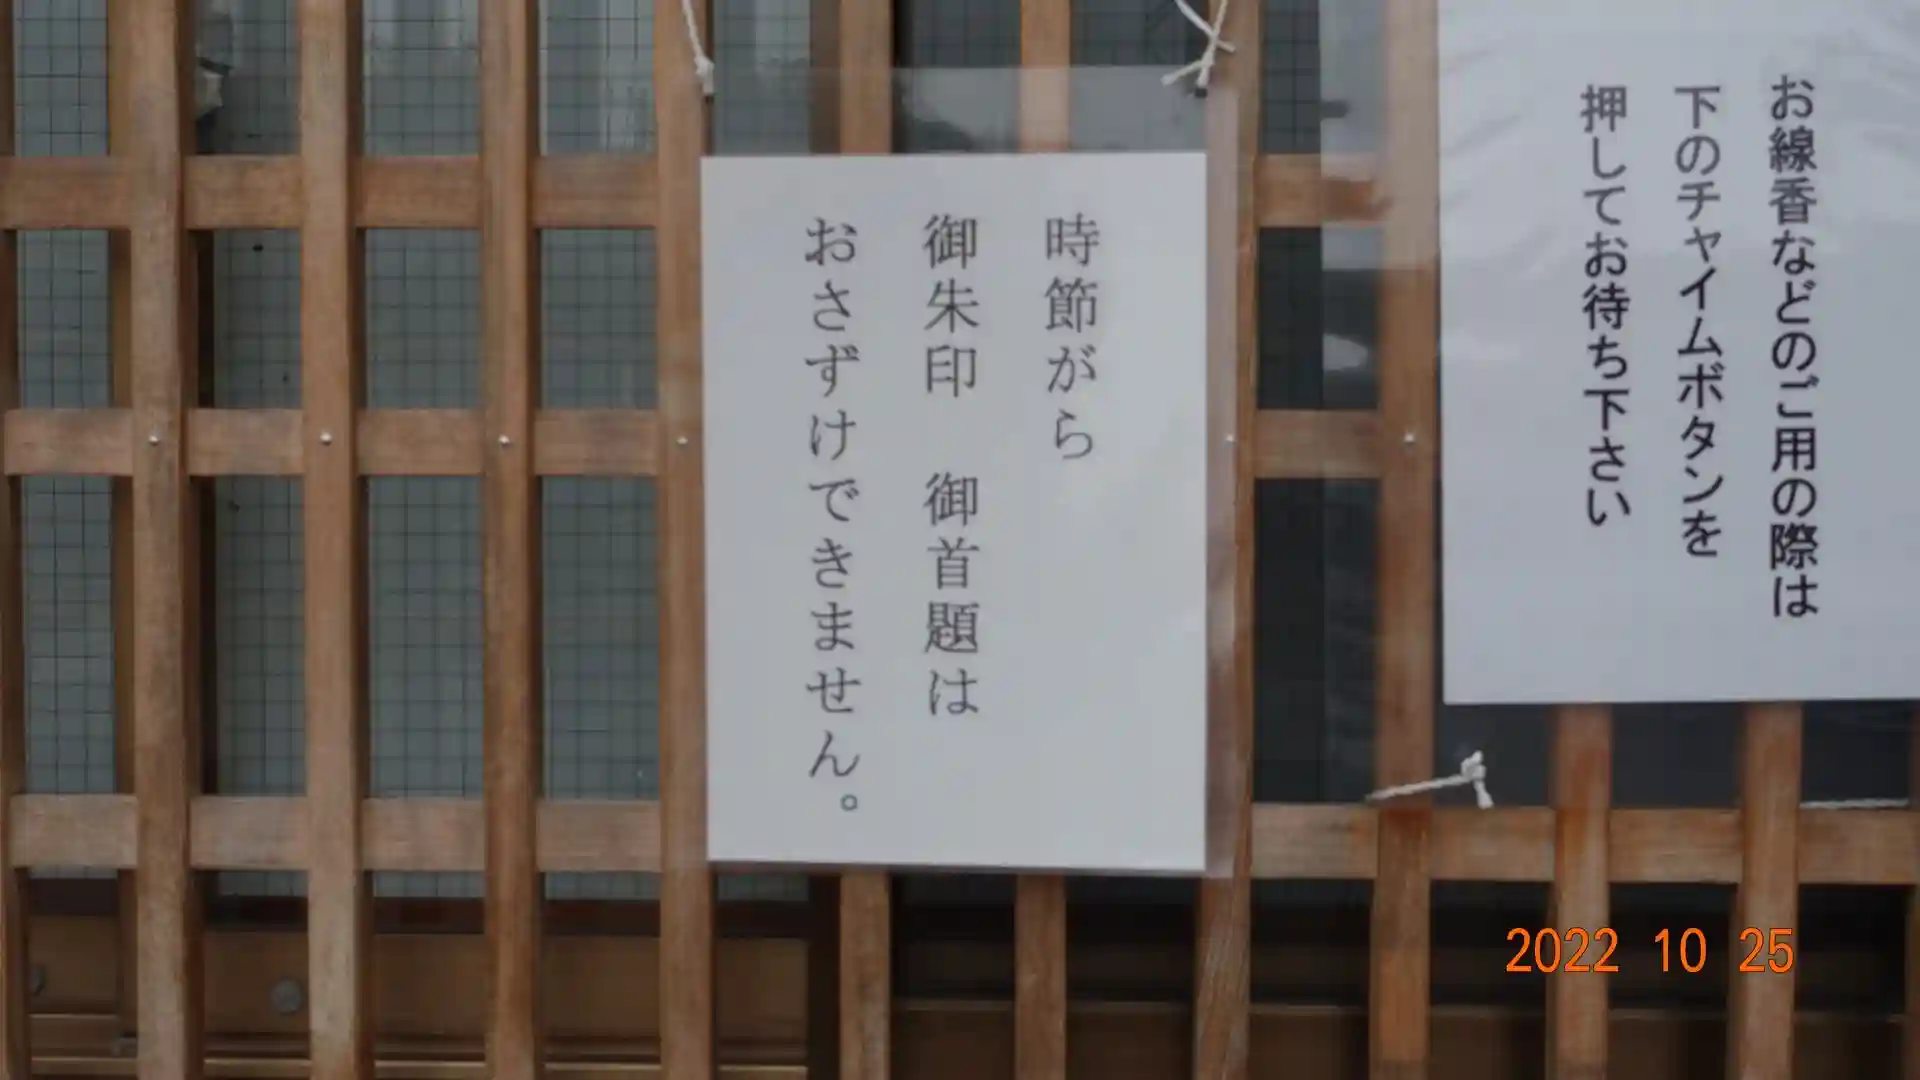 お線香などのご用の際は
下のチャイムボタンを
押してお待ち下さい
時節がら
御朱印　御首題は
おさずけできません。
2022 10 25